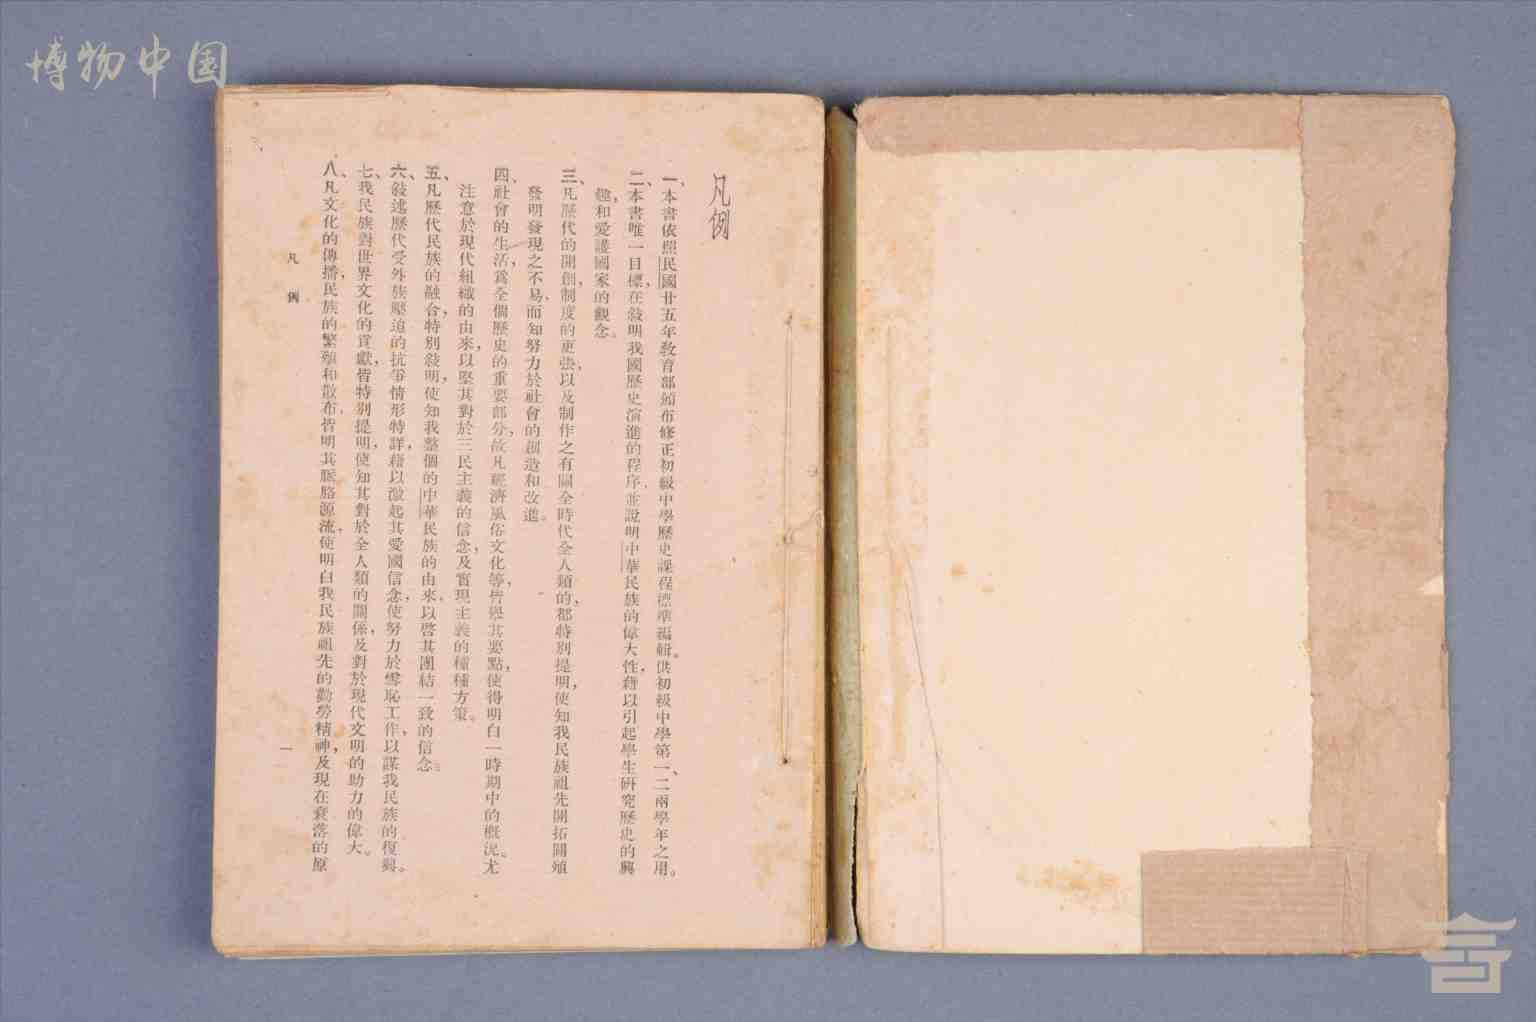 博物中国
凡例
一、本書依照民國廿五年教育部頒布修正初級中學歷史課程標準編輯。供初級中學第一、二兩學年之用。
二、本書唯一目標，在敍明我國歷史演進的程序，並說明中華民族的偉大性，藉以引起學生研究歷史的興
趣，和愛護國家的觀念。
三、凡歷代的開創，制度的更張，以及制作之有關全時代全人類的，都特別提明，使知我民族祖先開拓闢殖
發明發現之不易，而知努力於社會的創造和改進。
四、社會的生活，爲全個歷史的重要部分，故凡經濟風俗文化等，皆舉其要點，使得明白一時期中的概況。尤
注意於現代組織的由來，以堅其對於三民主義的信念，及實現主義的種種方策。
五、凡歷代民族的融合，特別敍明，使知我整個的中華民族的由來，以啓其團結一致的信念。
六、敍述歷代受外族壓迫的抗爭情形特詳，藉以激起其愛國信念，使努力於雪恥工作，以謀我民族的復興。
七、我民族對世界文化的貢獻，皆特別提明，使知其對於全人類的關係，及對於現代文明的助力的偉大。
八、凡文化的傳播，民族的繁殖和散布，皆明其脈胳源流，使明白我民族祖先的勤勞精神，及現在衰落的原
凡例
一